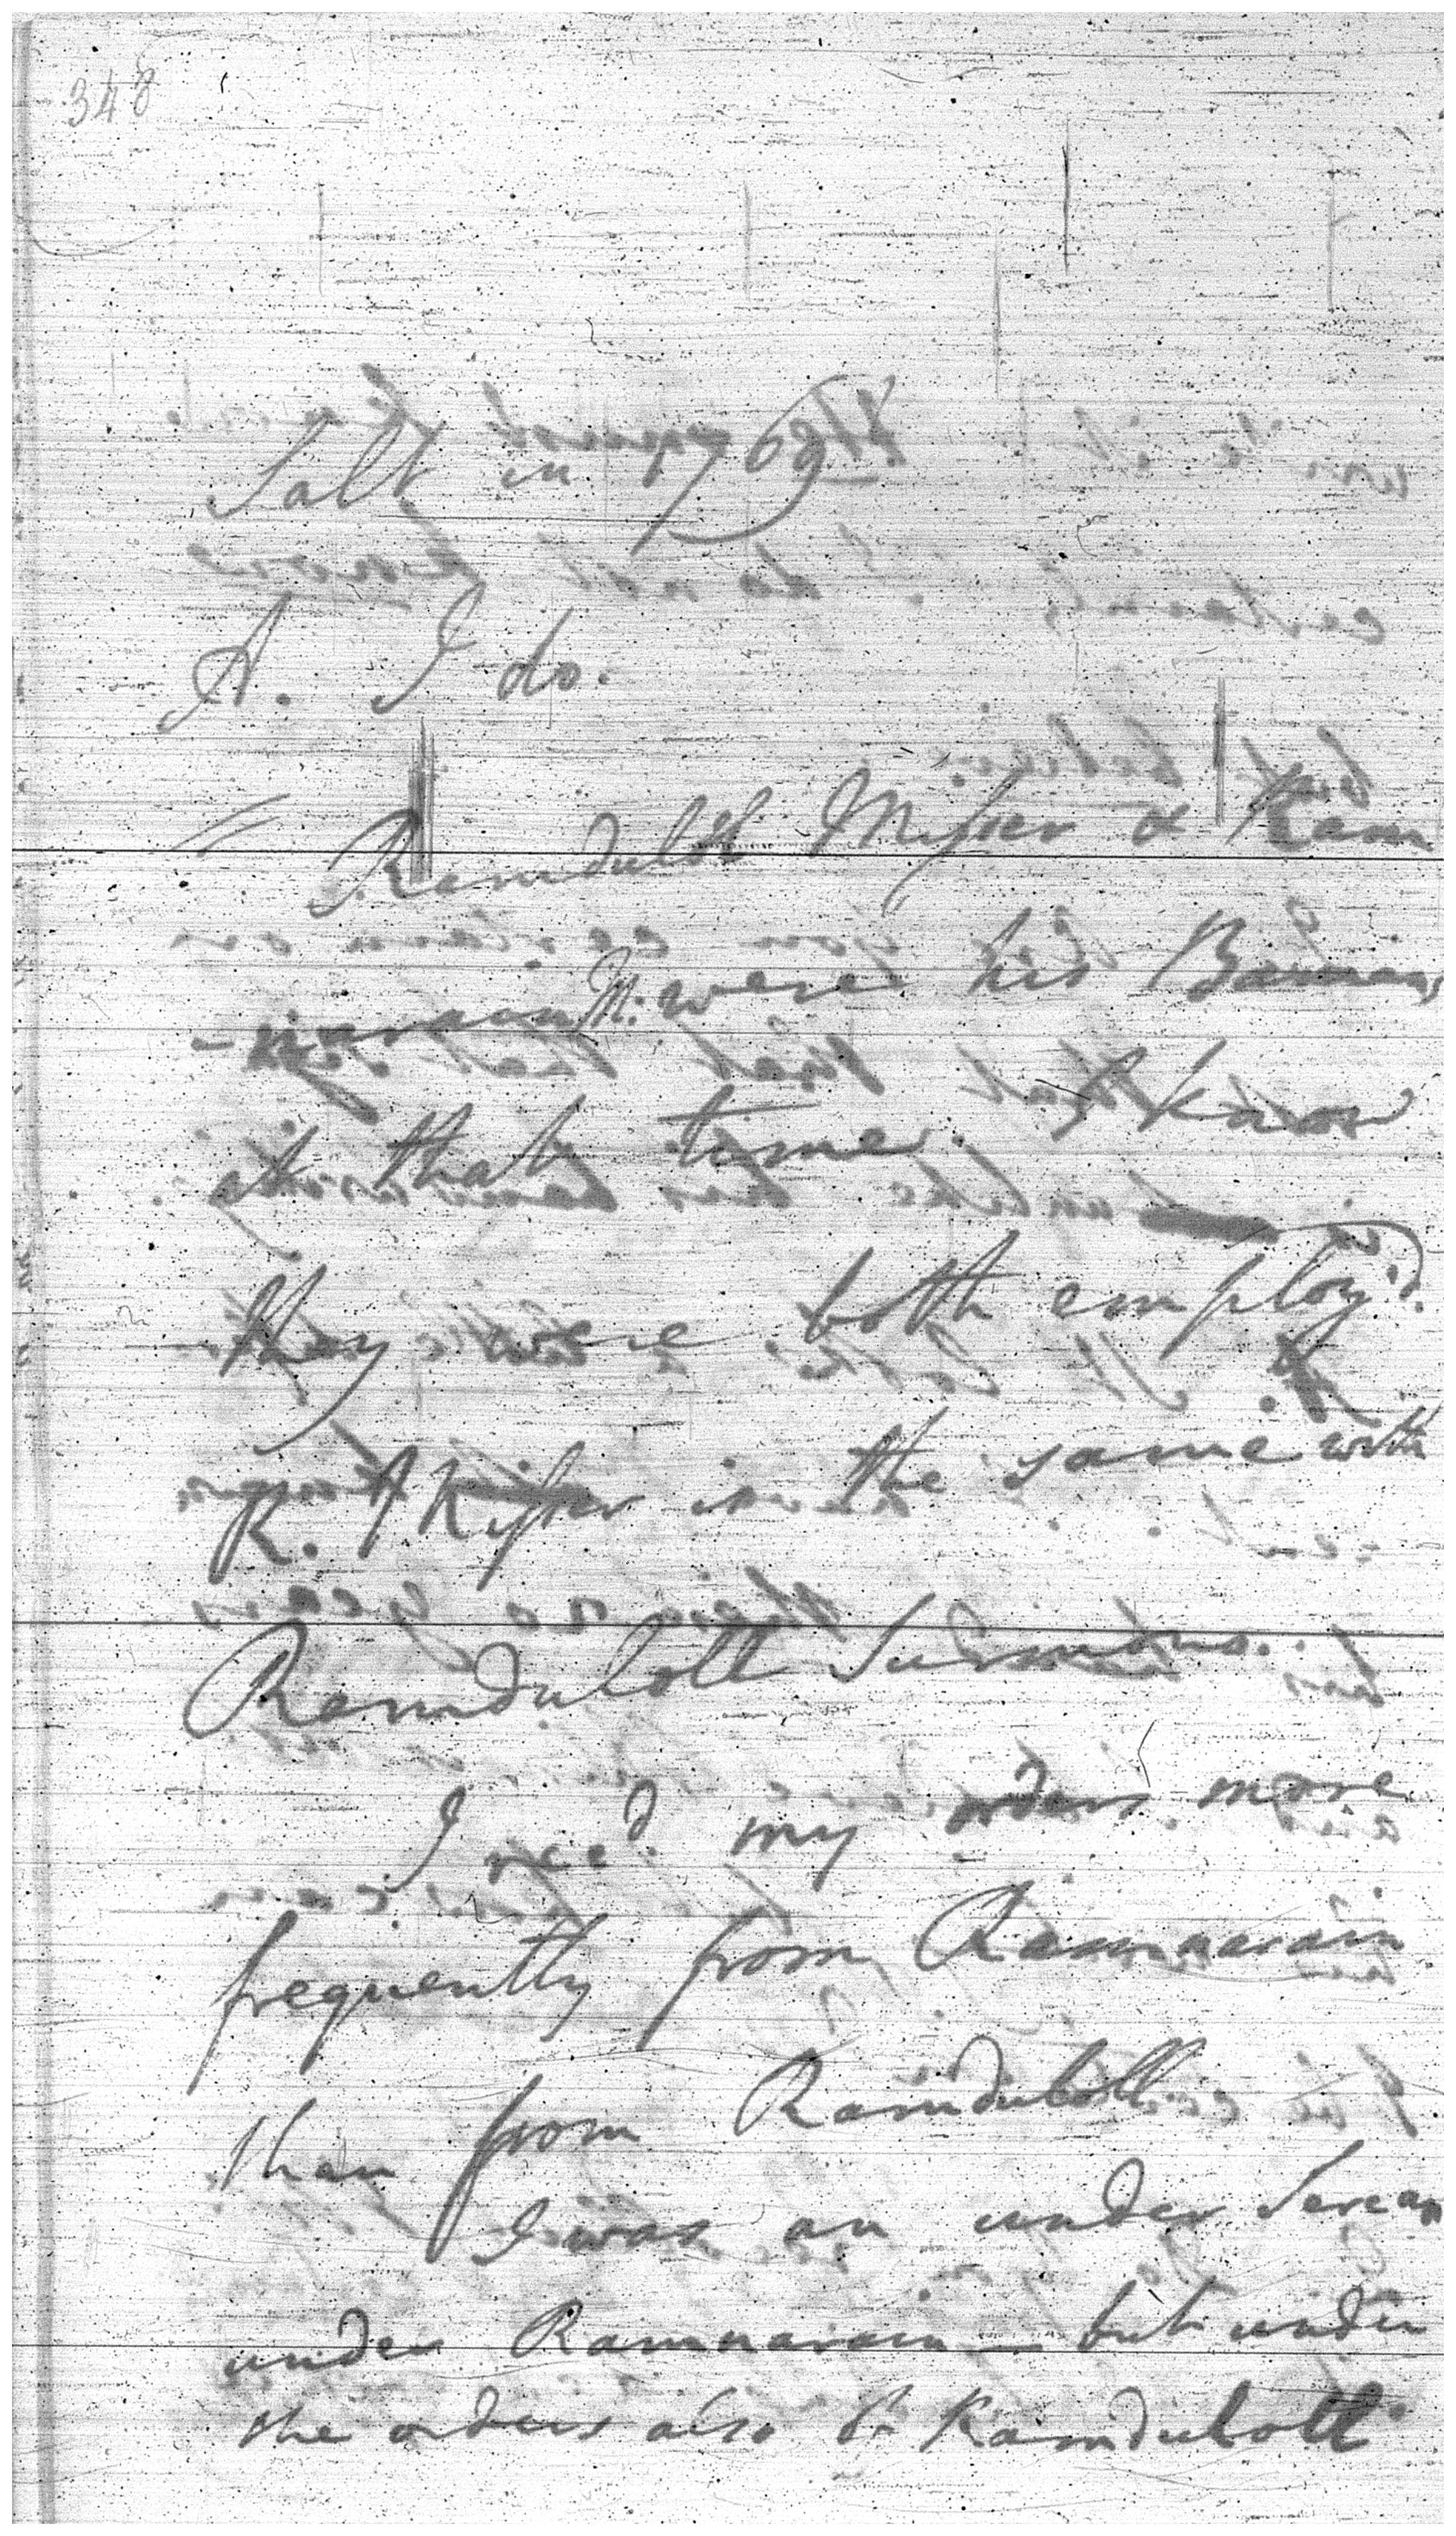 348
Salt in 1769
A. I do.
Ramdulol Misser & Ram
-narain M: were his Banians
at that time. I know
they were both employ'd.
R. Misser is the same with
Ramduloll Surmono.
I rec'd my orders more
frequently from Ramnarain
than from Ramduloll
I was an under
under Ramnarain — but under
the orders also of Ramduloll